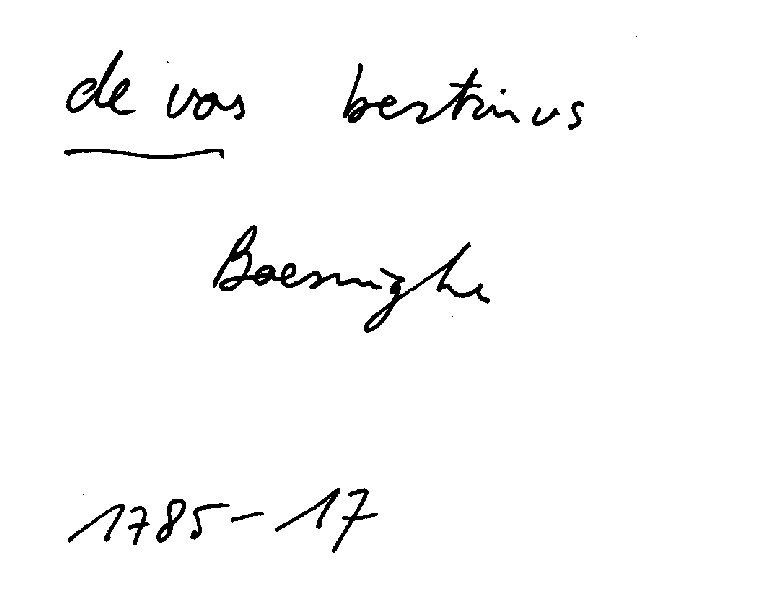 de vos bertinus
Boesinghe
1785-17